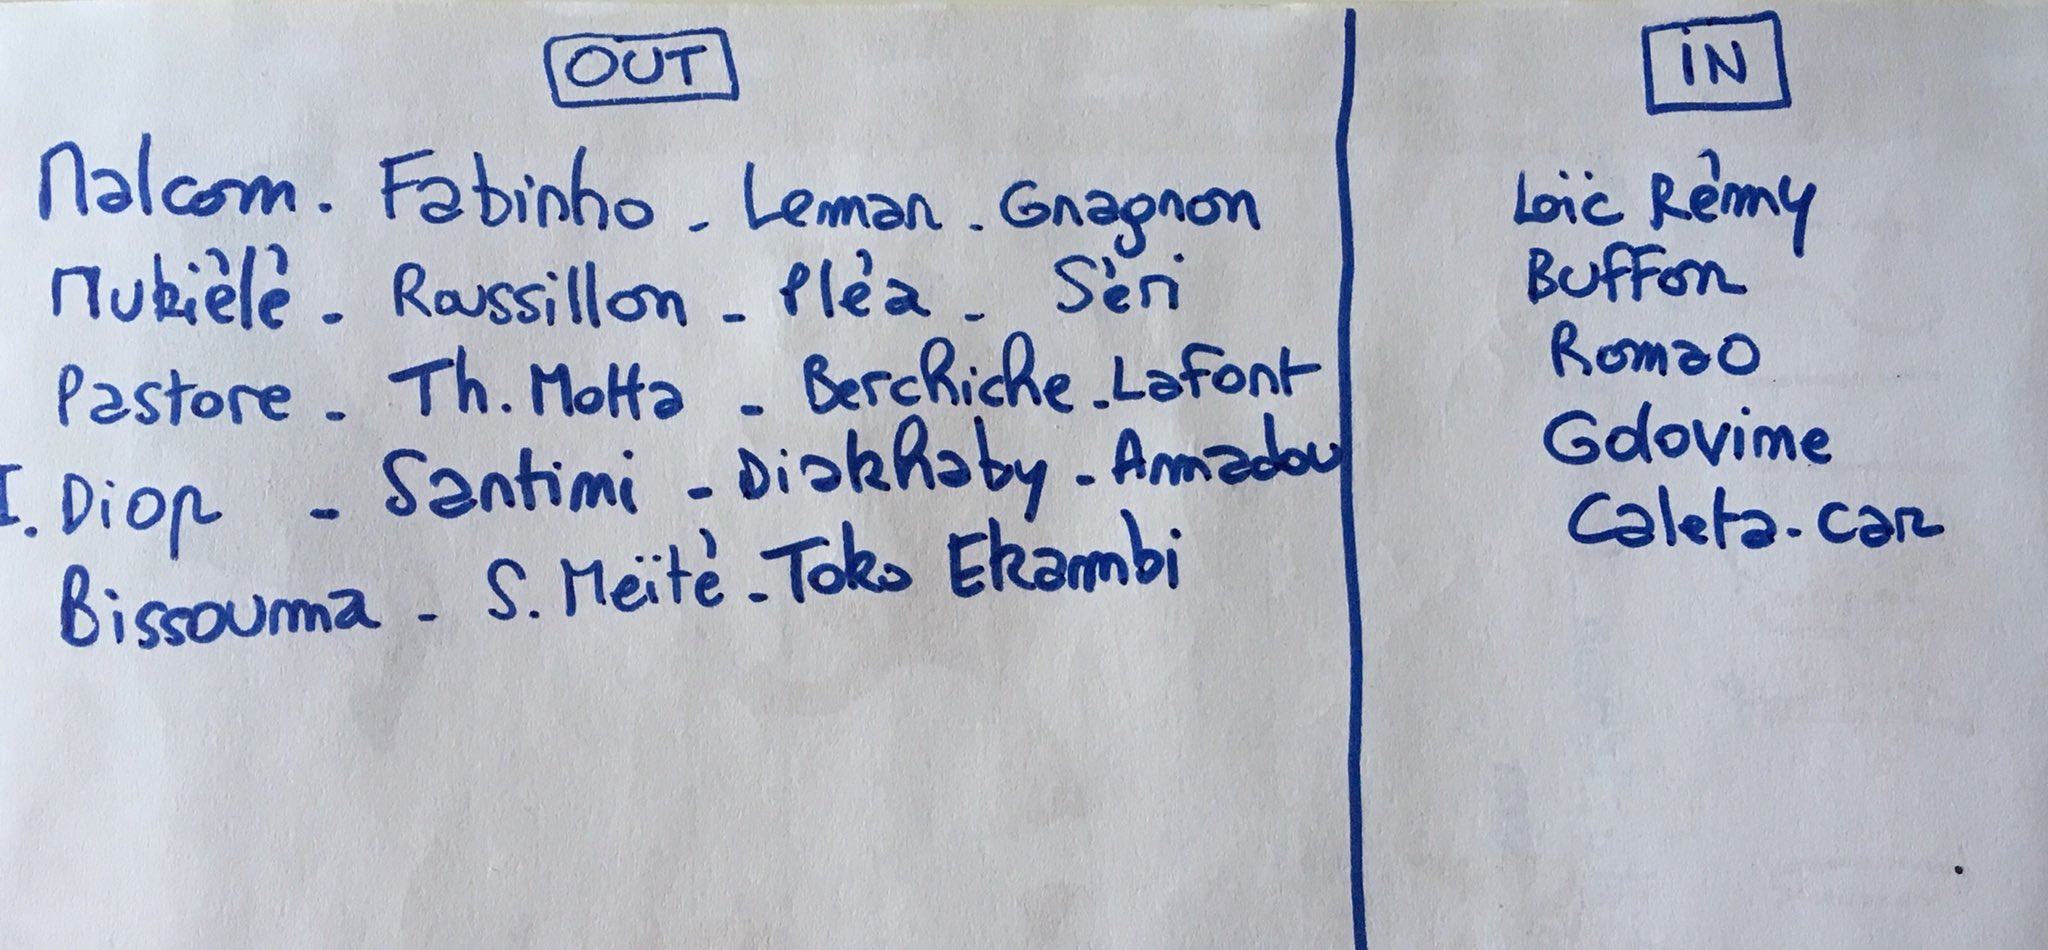 OUT
Malcom. Fabinho - Leman - Gnagnon
Mukièlè - Roussillon - Pléa - Séri
Pastore - Th. Motta - Berchiche - Lafont
I. Diop - Santini - Diakhaby - Amadou
Bissouma - S. Meïté - Toko Ekambi
IN
Loïc Rémy
Buffon
Romao
Golovine
Caleta-Car